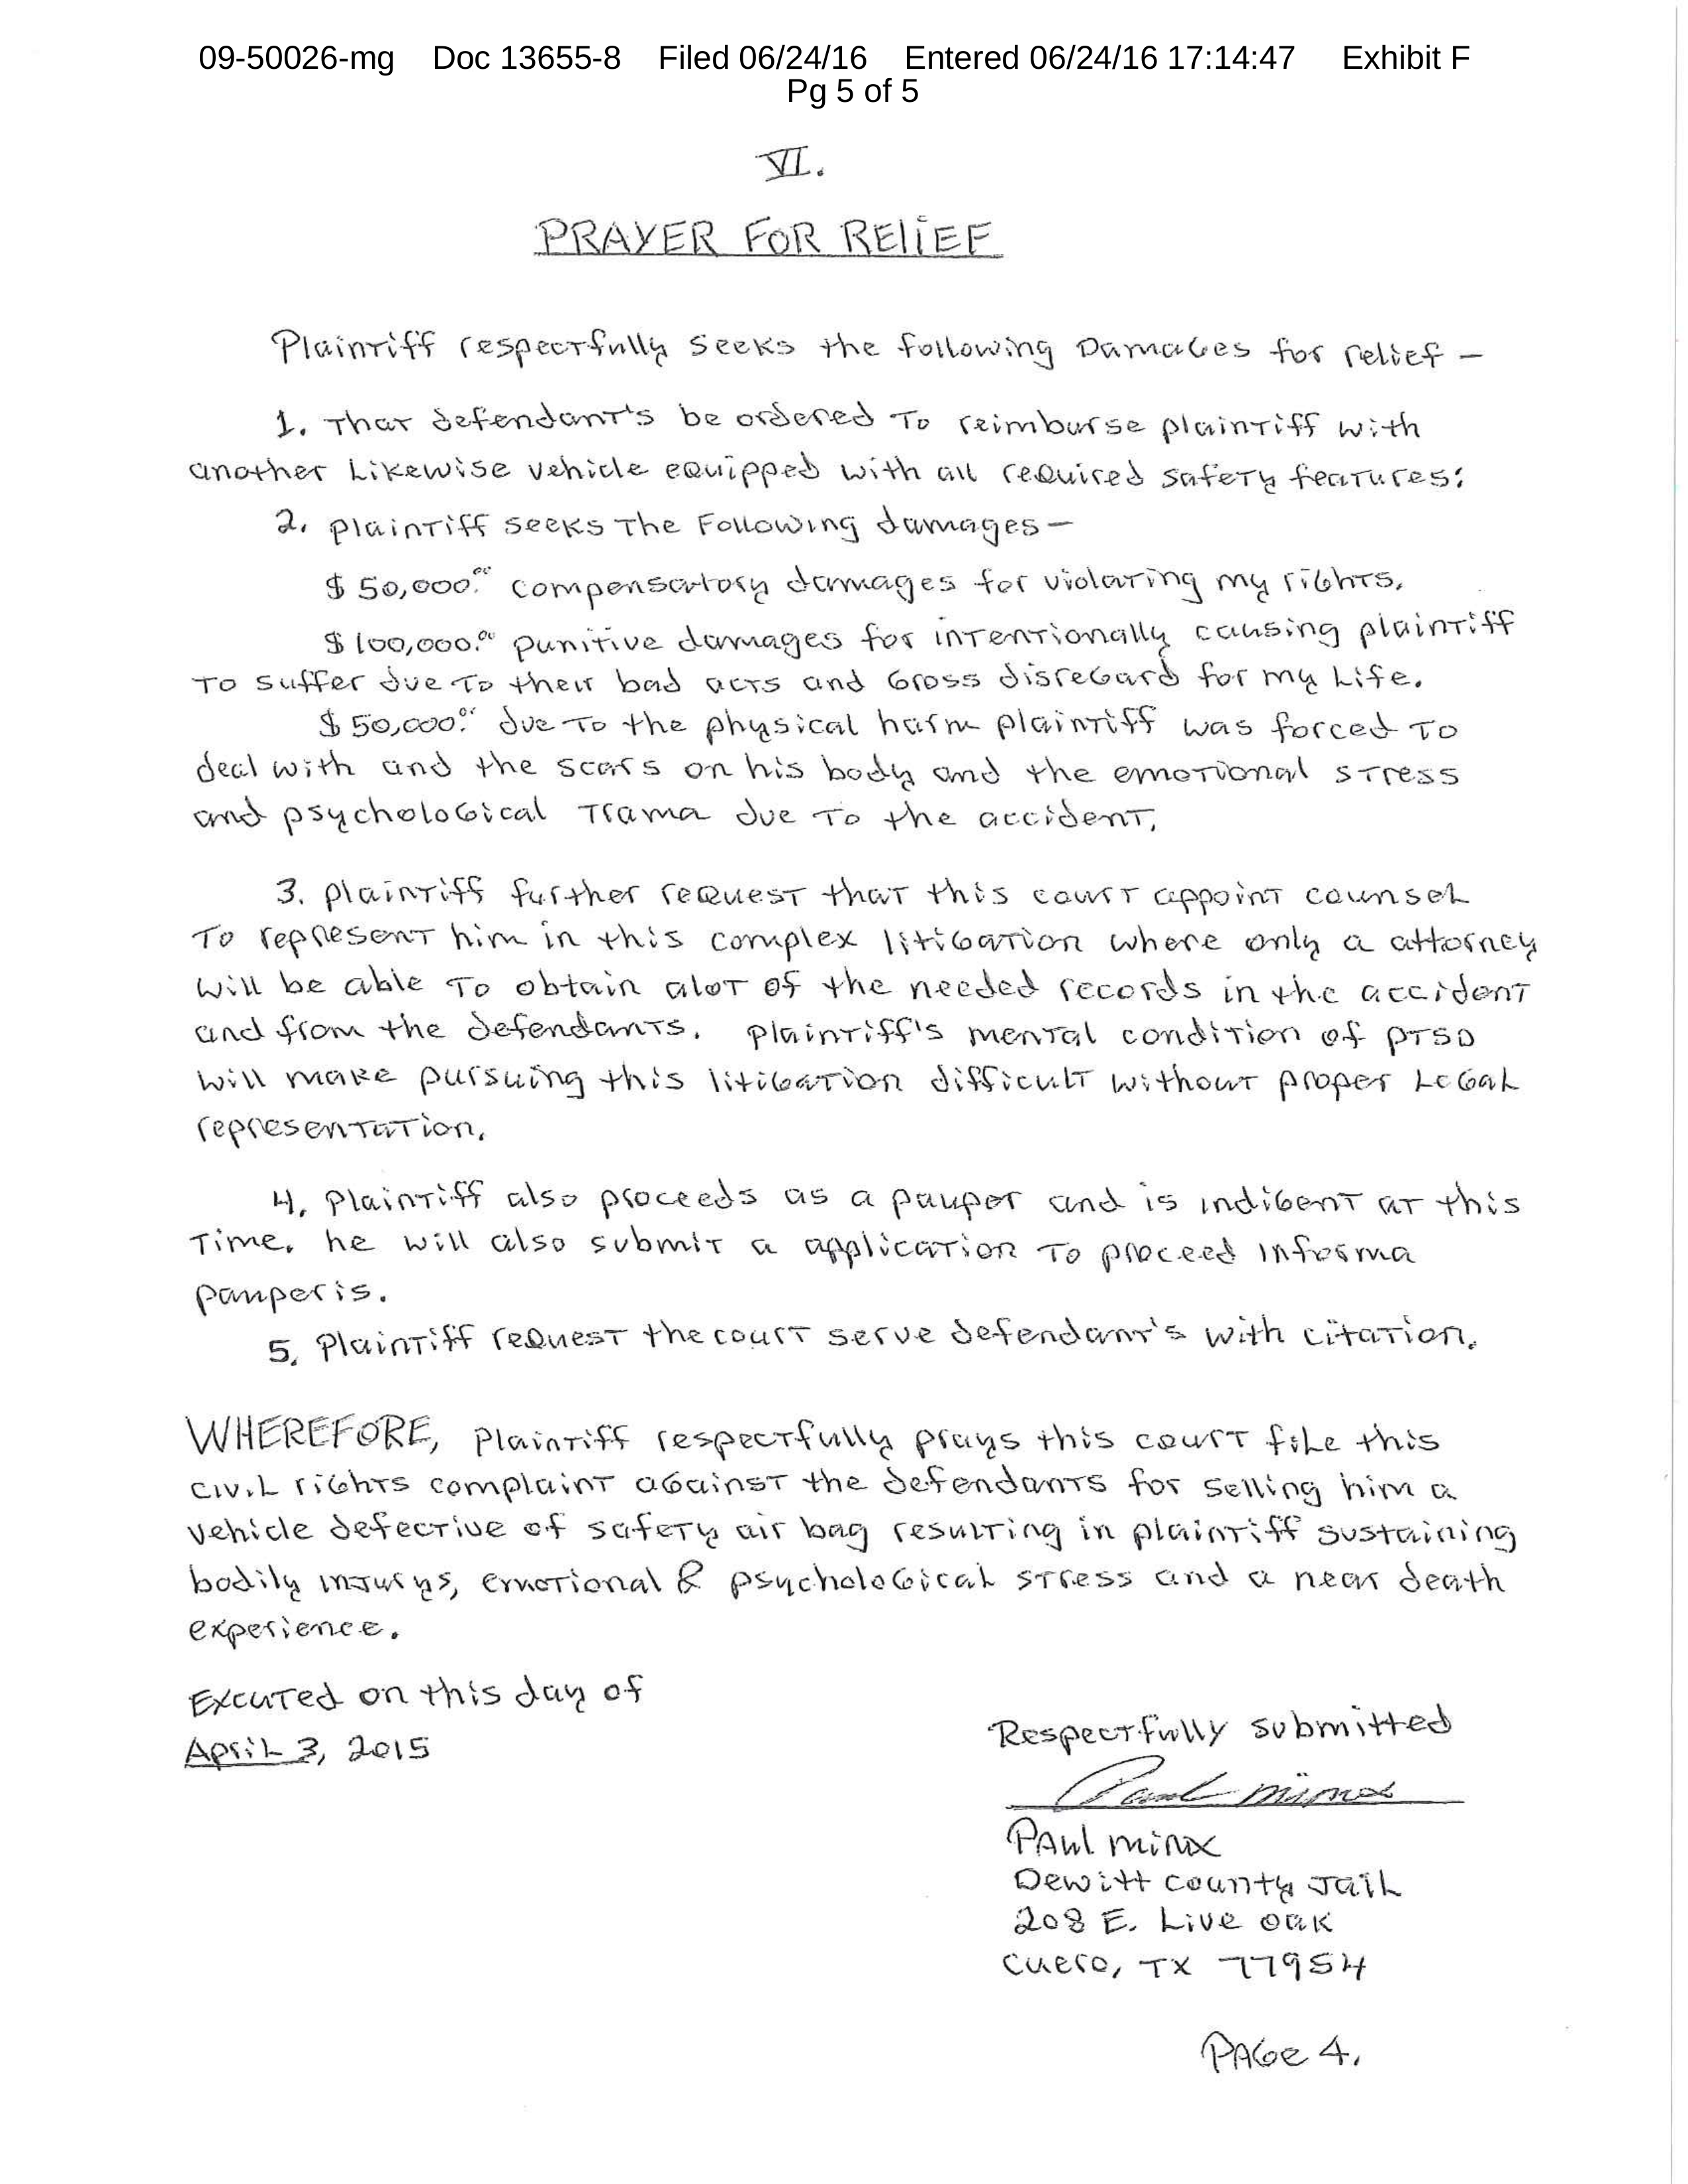 09-50026-mg Doc 13655-8 Filed 06/24/16 Entered 06/24/16 17:14:47 Exhibit F
Pg 5 of 5
VI.
PRAYER FOR RELIEF
Plaintiff respectfully seeks the following Damages for relief —
1. That defendant's be ordered to reimburse plaintiff with
another Likewise vehicle equipped with all required safety features:
2. plaintiff seeks the Following damages —
$50,000.00 compensatory damages for violating my rights.
$100,000.00 punitive damages for intentionally causing plaintiff
to suffer due to their bad acts and Gross disregard for my Life.
$50,000.00 due to the physical harm plaintiff was forced to
deal with and the scars on his body and the emotional stress
and psychological Trama due to the accident.
3. plaintiff further request that this court appoint counsel
to represent him in this complex litigation where only a attorney
will be able to obtain alot of the needed records in the accident
and from the defendants. plaintiff's mental condition of PTSD
will make pursuing this litigation difficult without proper Legal
representation.
4. Plaintiff also proceeds as a pauper and is indigent at this
Time. he will also submit a application to proceed Informa
pauperis.
5. Plaintiff request the court serve defendant's with citation.
WHEREFORE, Plaintiff respectfully prays this court file this
civil rights complaint against the defendants for selling him a
vehicle defective of safety air bag resulting in plaintiff sustaining
bodily injurys, emotional & psychological stress and a near death
experience.
Excuted on this day of
April 3, 2015
Respectfully submitted
Paul Minx
PAul minx
Dewitt county Jail
208 E. Live oak
Cuero, TX 77954
PAGe 4.